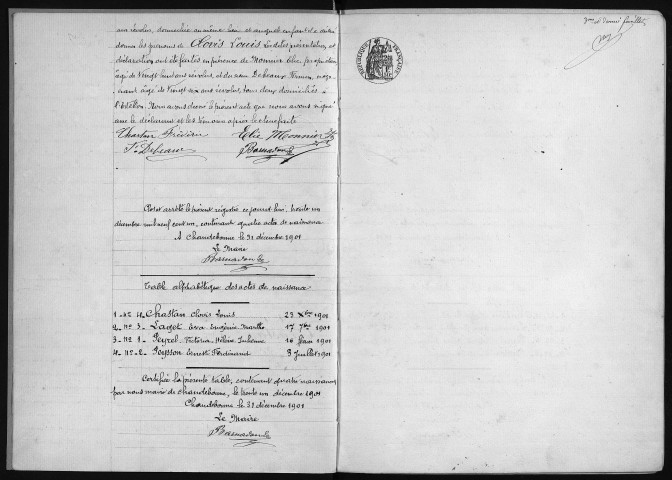 ans révolus, domiciliée au même lieu et auquel enfant il a dit
donner les prénoms de Clovis Louis. Lesdites présentation et
déclaration ont été faites en présence de Monnier Elie, propriétaire,
âgé de vingt huit ans révolus, et du sieur Debeaux Firmin,
âgé de vingt six ans révolus, tous deux domiciliés à
l'Estellon. Nous avons dressé le présent acte que nous avons signé
avec le déclarant et les témoins après lecture faite
Chastan Elie Monnier
F. Debeaux Bamadon
Clos et arrêté le présent registre ce jourd'hui, trente un
décembre mil neuf cent un, contenant quatre actes de naissance
A Chaudebonne le 31 décembre 1901
Le Maire
Table alphabétique des actes de naissance
1 - No 4 - Chastan Clovis Louis 23 Xbre 1901
2 - No 3 - Laget Eugénie Marthe 17 7bre 1901
3 - No 1 - Peyrel Victoria Hélène Julienne 16 1901
4 - No 2 - Peysson Ernest Ferdinand 8 Juillet 1901
Certifié la présente table, contenant quatre naissances
par nous maire de Chaudebonne, le trente un décembre 1901
Chaudebonne le 31 décembre 1901
Le Maire
3me et dernier feuillet
RÉPUBLIQUE FRANÇAISE